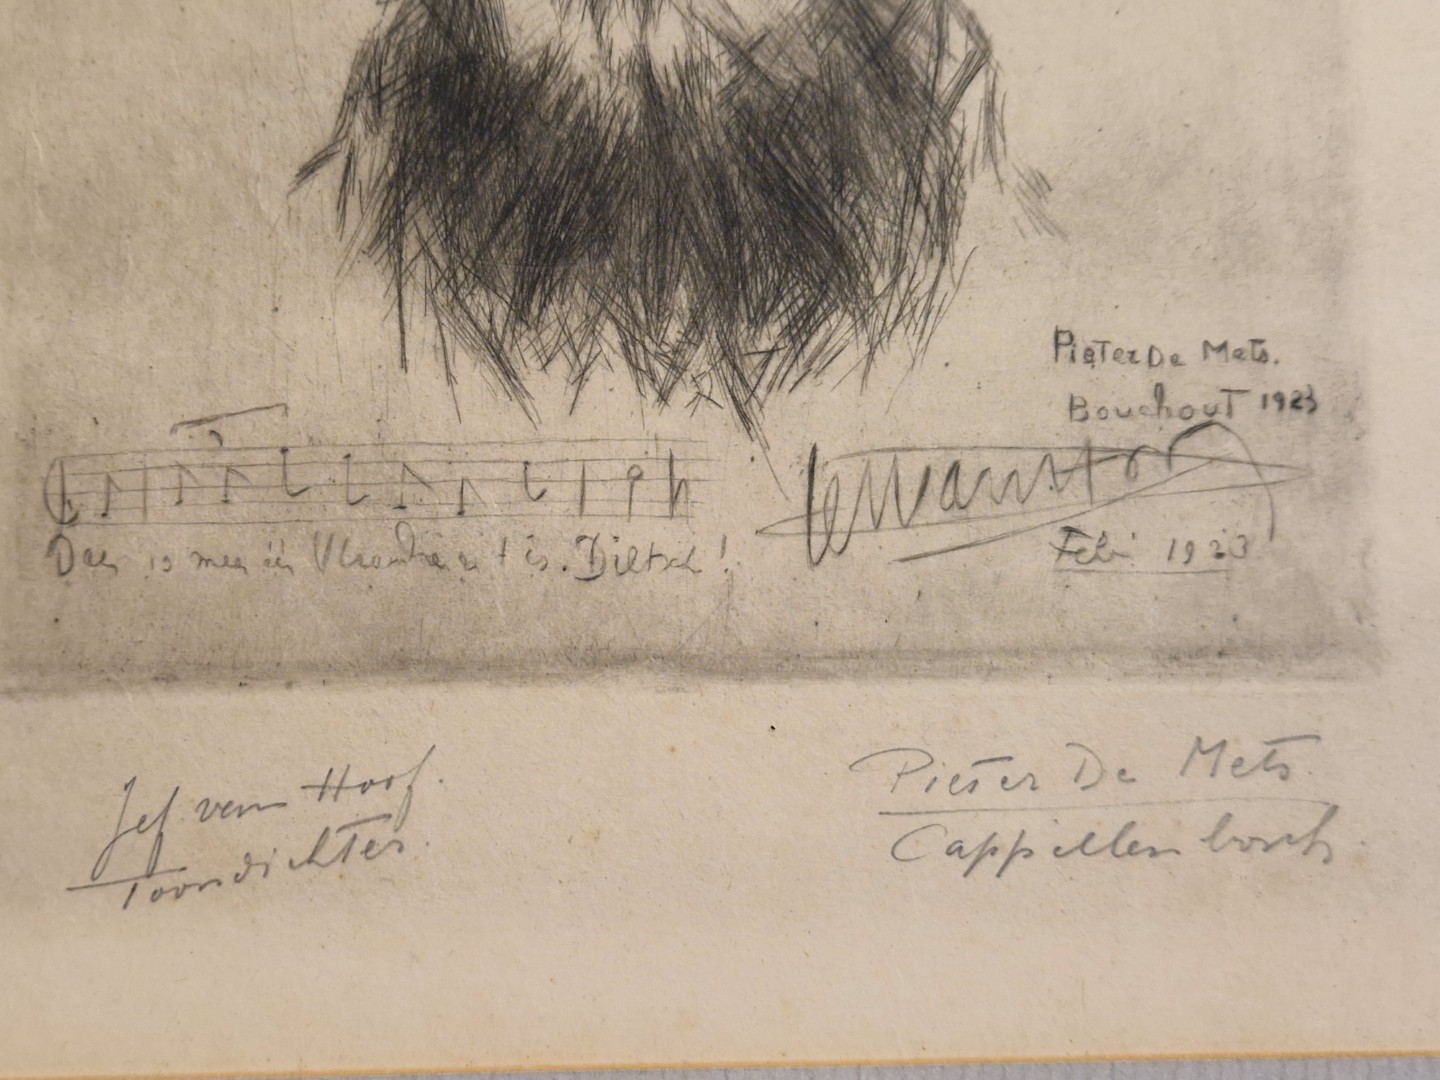 Pieter De Mets.
Bouchout 1923
Daer is maer één Vlaanderen t is. Dietsch!
Febr 1923
Jef van Hoof.
Toondichter.
Pieter De Mets
Cappellenbosch.